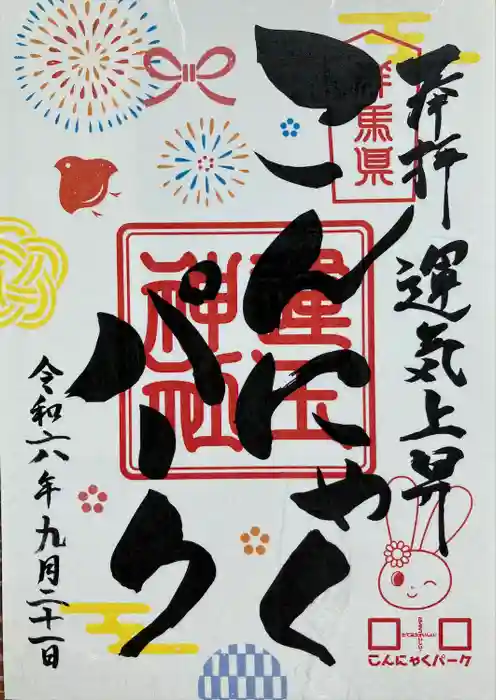 奉拝
運気上昇
群馬県
こんにゃく
パーク
運玉
神社
令和六年九月二十一日
こんにゃくパーク